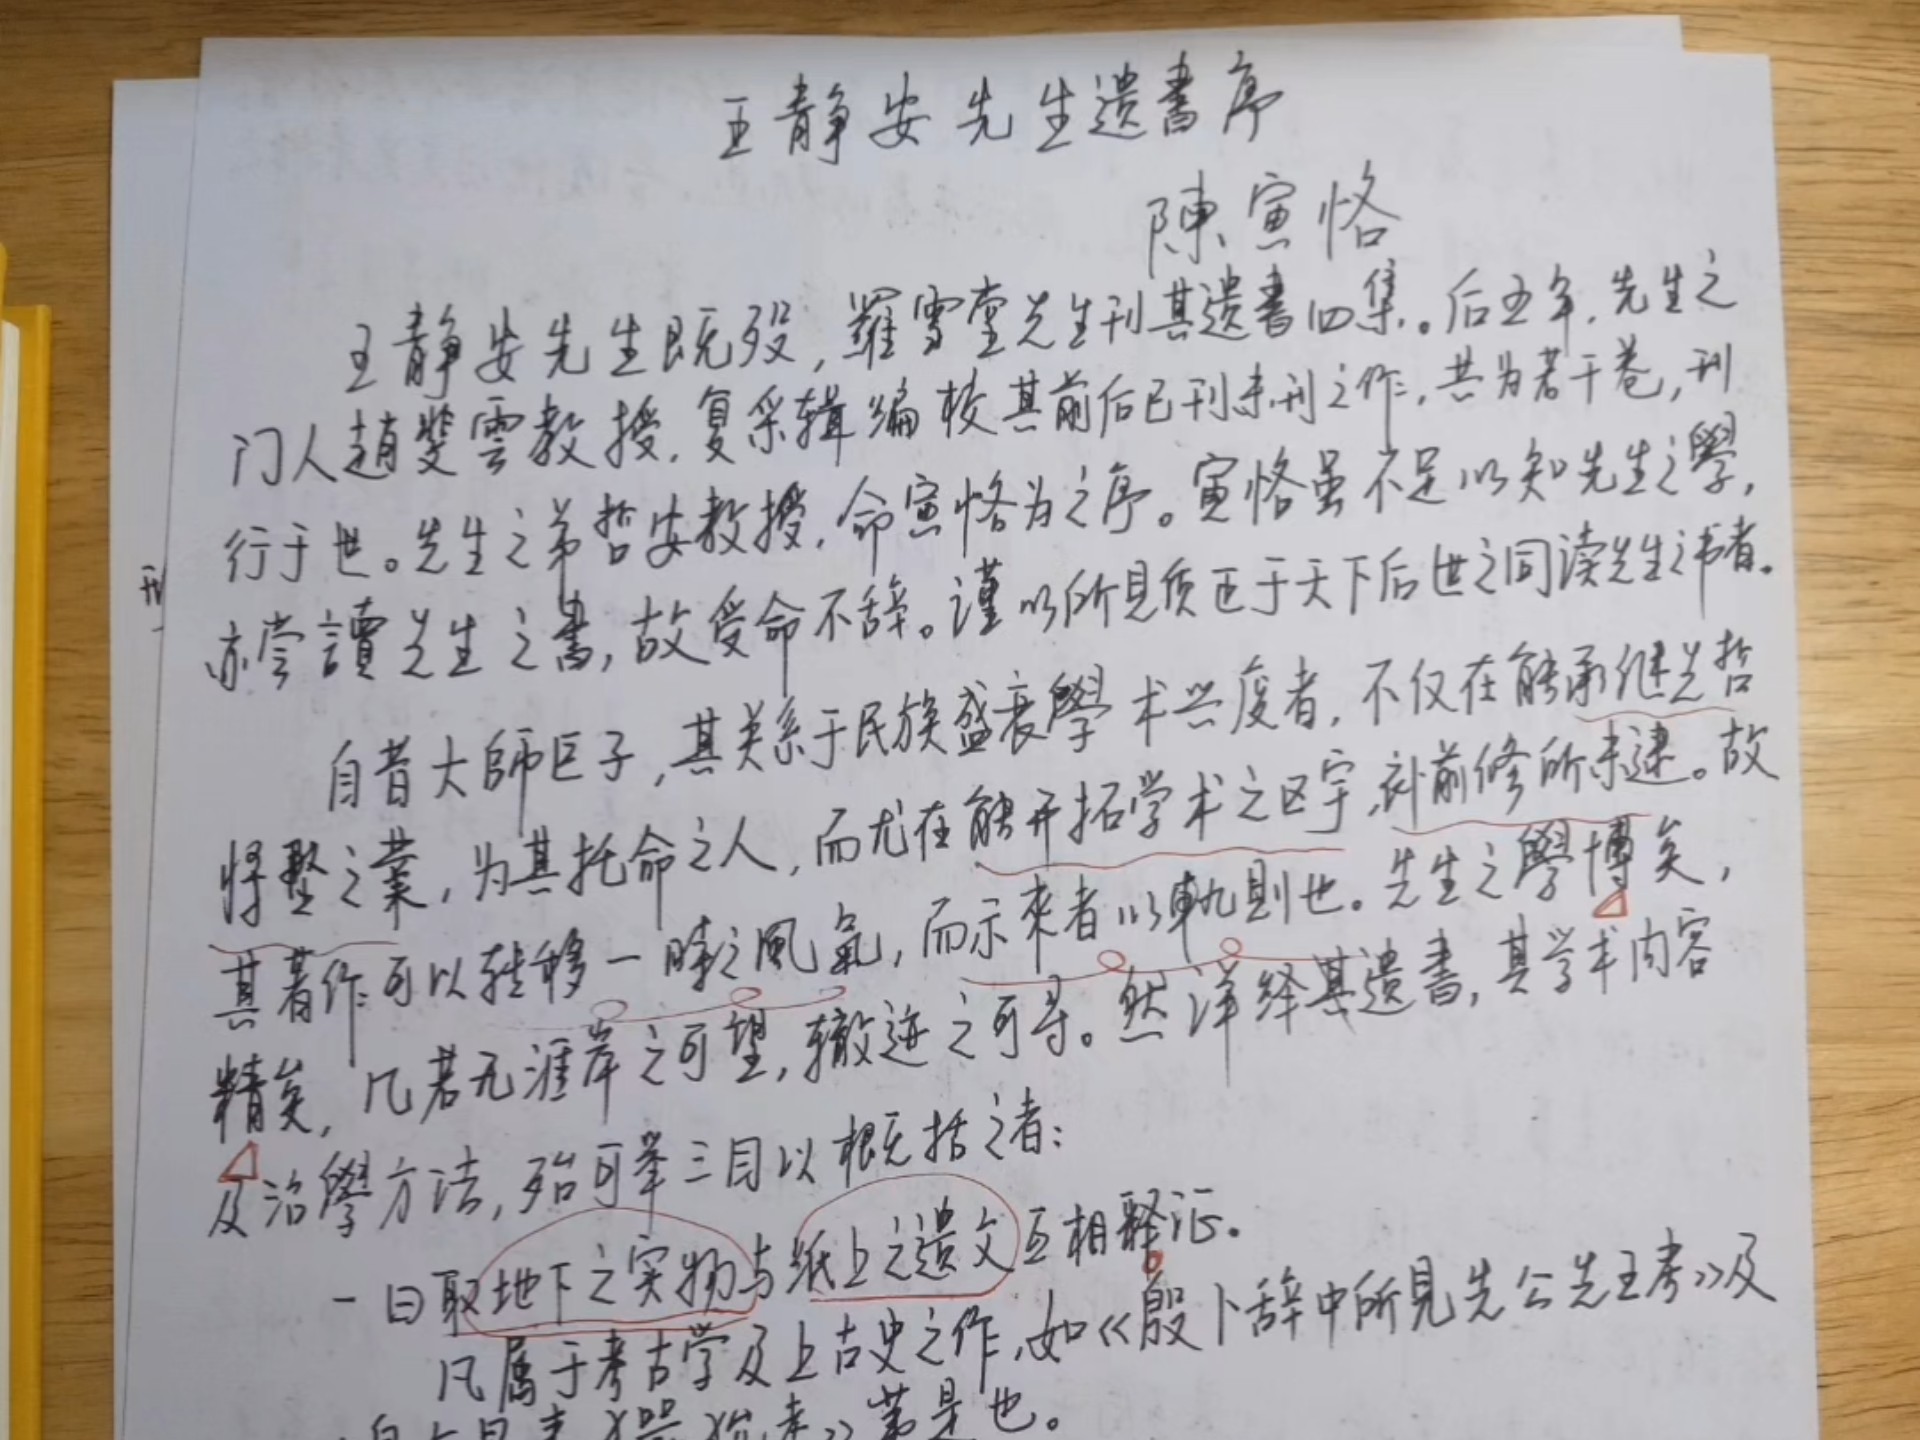 王静安先生遗書序
陳寅恪
王静安先生既殁，羅雪堂先生刊其遗書四集。后五年，先生之
门人趙斐雲教授，复采辑编校其前后已刊未刊之作，共为若干卷，刊
行于世。先生之弟哲安教授，命寅恪为之序。寅恪虽不足以知先生之學，
亦尝讀先生之書，故受命不辞。谨以所見质正于天下后世之同读先生之书者。
自昔大師巨子，其关系于民族盛衰學术兴废者，不仅在能承继先哲
将墜之業，为其托命之人，而尤在能开拓学术之区宇，补前修所未逮。故
其著作可以转移一時之風氣，而示來者以軌則也。先生之學博矣，
精矣，几若无涯岸之可望，辙迹之可寻。然详绎其遗書，其学术内容
及治學方法，殆可举三目以概括之者：
一曰取地下之实物与纸上之遗文互相释证。
凡属于考古学及上古史之作，如《殷卜辞中所見先公先王考》及
考》等是也。
刊